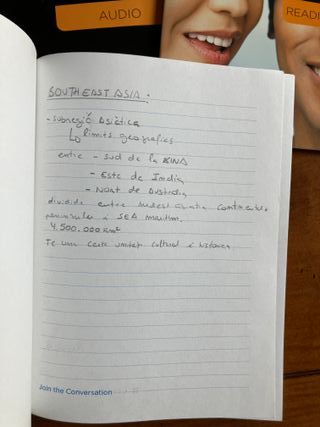 AUDIO
READI
SOUTHEAST ASIA:
- subregió Asiàtica
↳ límits geogràfics
entre - Sud de la XINA
- Este de Índia
- Nort de Australia
dividida entre continental
peninsular i SEA marítim.
4.500.000 Km²
Te una certa unitat cultural i històrica
Join the Conversation